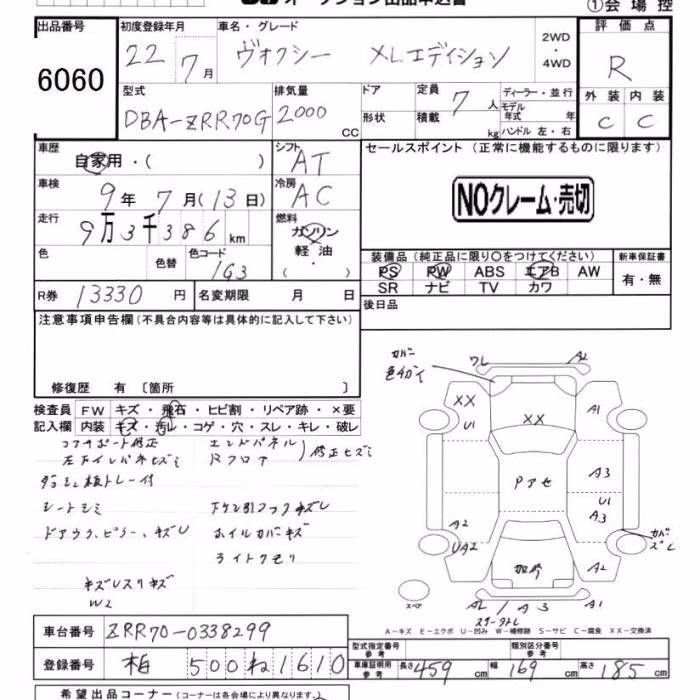 オークション出品申込書
①会場控
出品番号 初度登録年月 車名・グレード 評価点
6060 22年 7月 ヴォクシー XLエディション 2WD・4WD R
型式 排気量 ドア 定員 ディーラー・並行 外装 内装
DBA-ZRR70G 2000cc 形状 7人 積載 kg モデル年式 年 ハンドル 左・右 C C
車歴 自家用・( ) シフト AT セールスポイント (正常に機能するものに限ります)
車検 9年 7月(13日) 冷房 AC NOクレーム・売切
走行 9万3千386km 燃料 ガソリン 軽油 ( ・ )
色 色替 色コード 1G3 装備品(純正品に限り○をつけてください) 新車保証書
PS PW ABS エアB AW 有・無
SR ナビ TV カワ
R券 13330円 名変期限 月 日 後日品
注意事項申告欄(不具合内容等は具体的に記入して下さい)
修復歴 有〔箇所 〕
検査員 FW キズ・飛石・ヒビ割・リペア跡・×要
記入欄 内装 キズ・汚レ・コゲ・穴・スレ・キレ・破レ
コアサポート修正 エンドパネル
Rフロア 修正ヒズミ
シートシミ
ホイルカバーキズ
ライトクモリ
W2
カバー色チガイ
ワレ A2
XX U1 XX A1
Pアセ A3
U1
A3
A2
UA2 A2
カバーズレ
加修
スペア A3 A1
A-キズ E-エクボ U-凹み W-補修跡 S-サビ C-腐食 XX-交換済
車台番号 ZRR70-0338299
登録番号 柏 500 ね 1610
型式指定番号 参考 類別区分番号 参考
車庫証明用 参考 長さ 459cm 幅 169cm 高さ 185cm
希望出品コーナー(コーナーは各会場により異なります。)